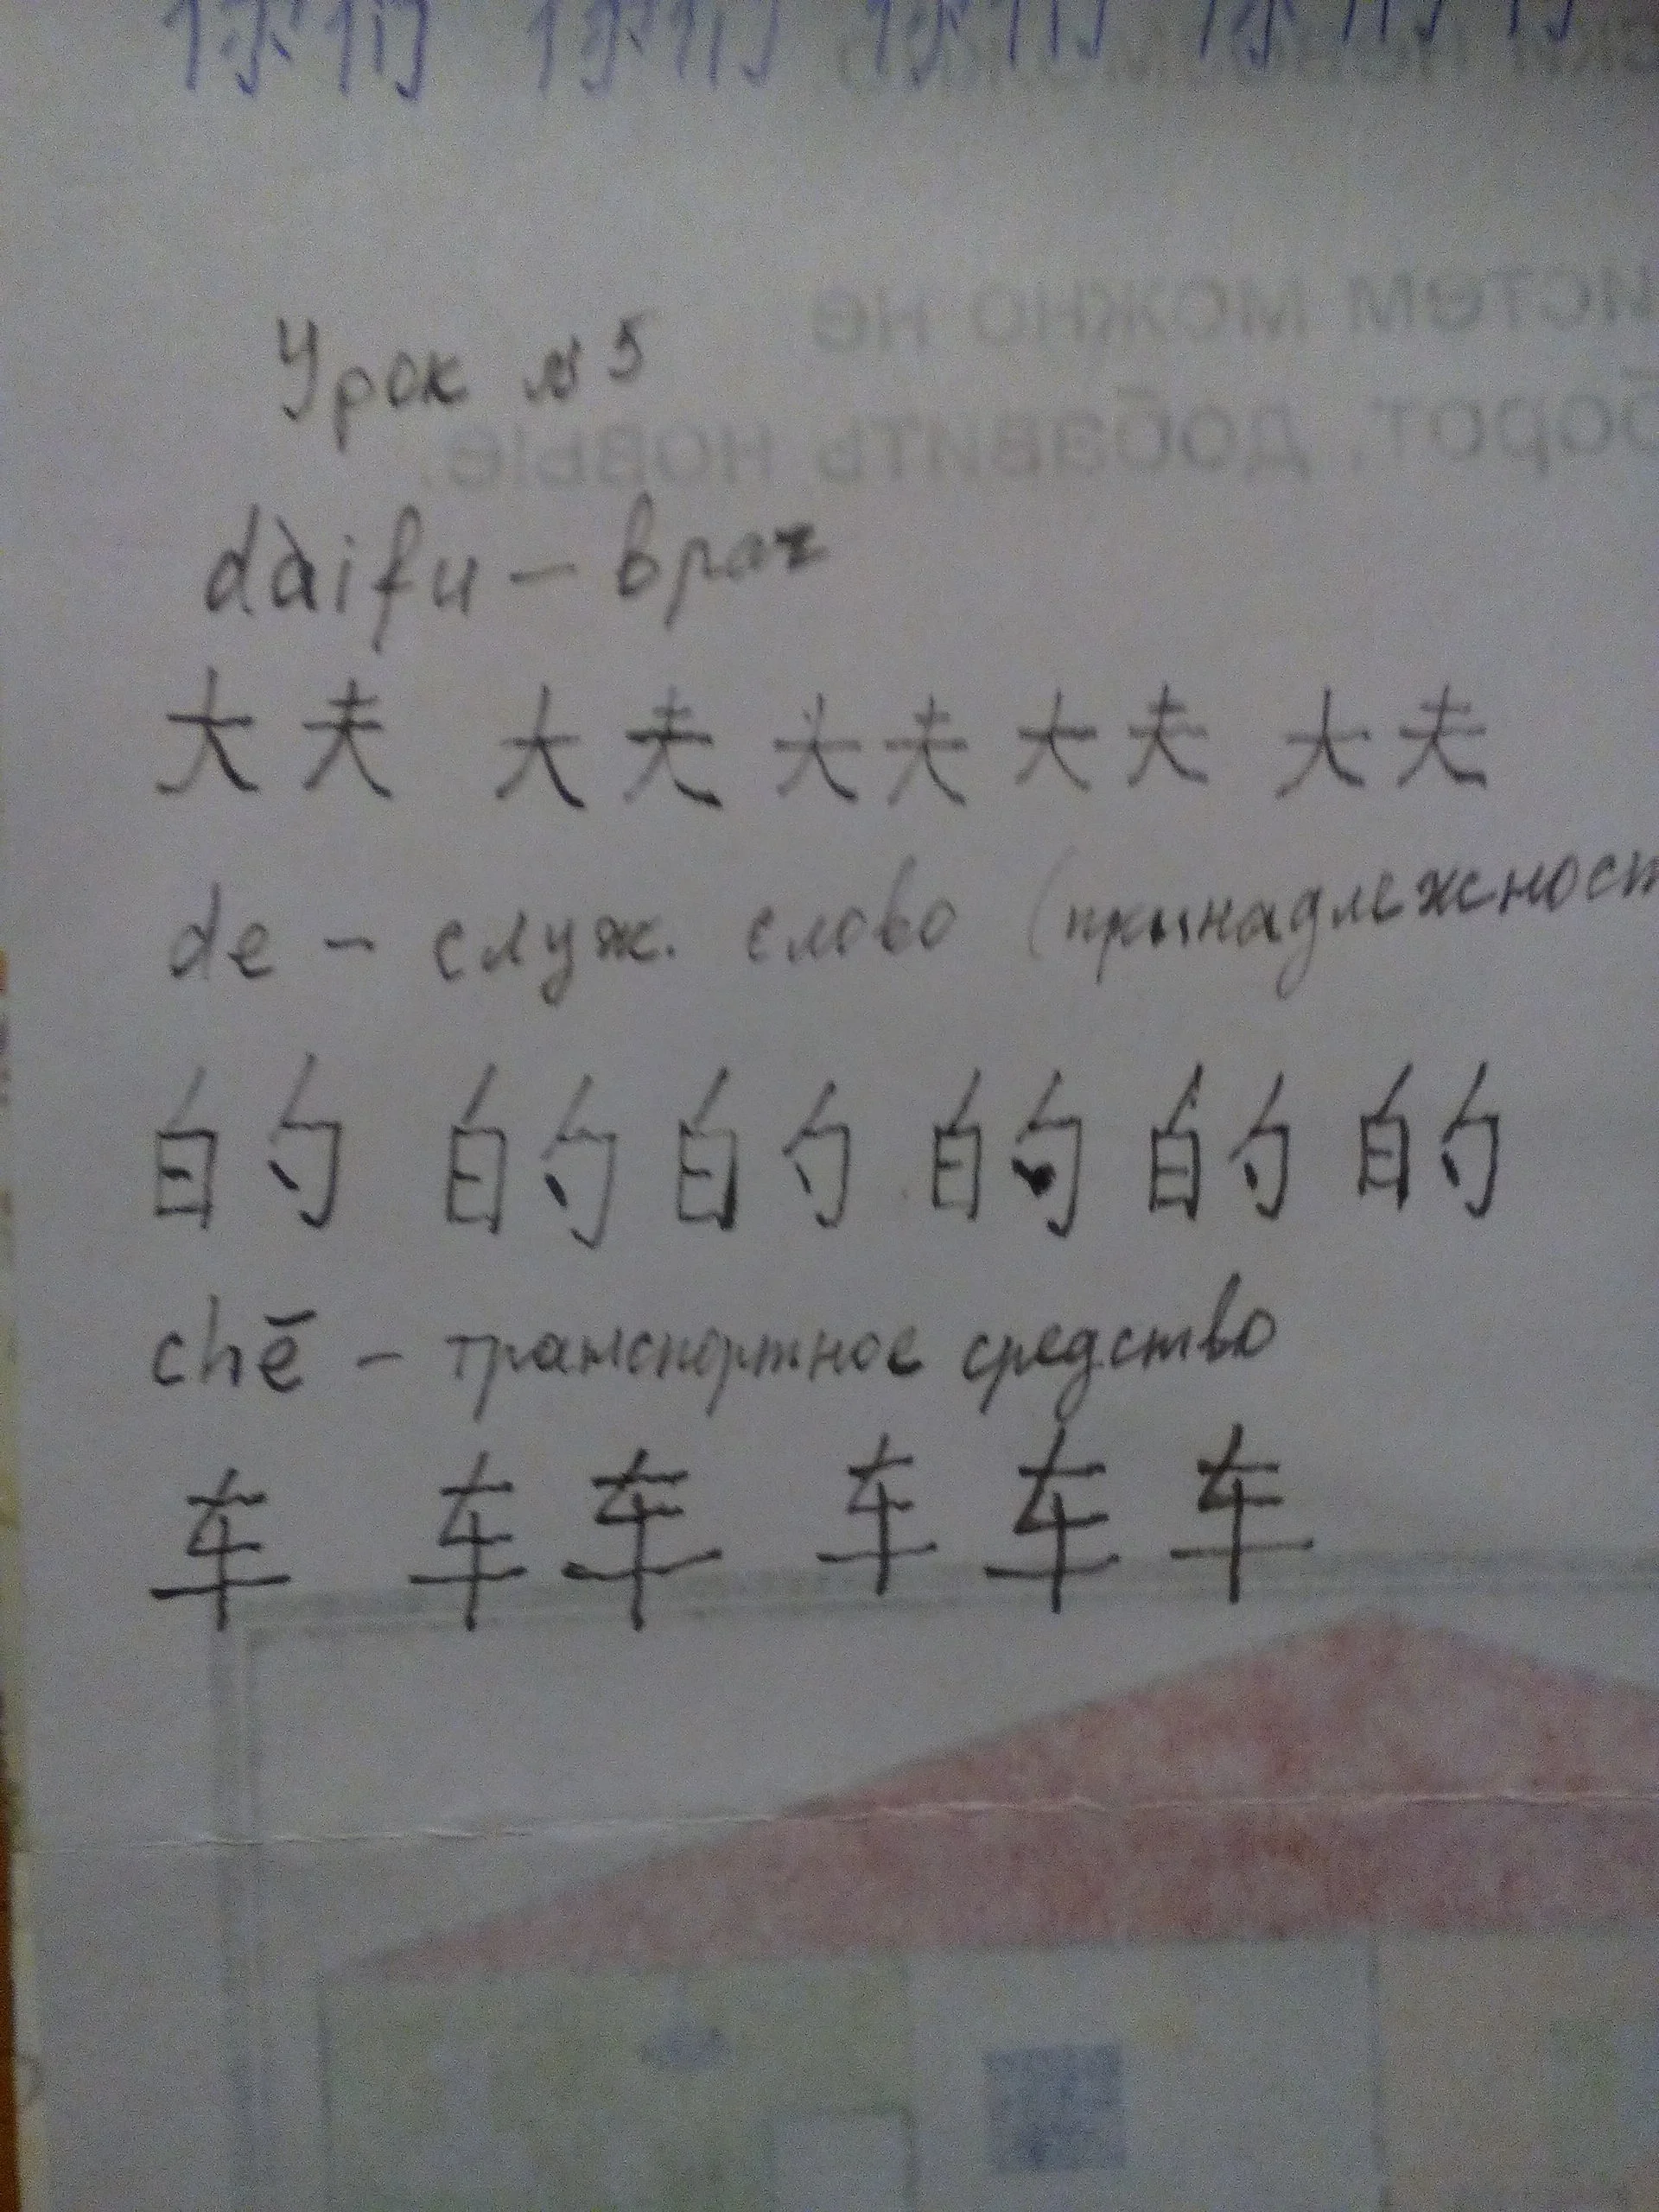 你们 你们 你们 你们
Урок №5
dàifu – врач
大夫 大夫 大夫 大夫 大夫
de – служ. слово (принадлежност
的 的 的 的 的 的
chē – транспортное средство
车 车 车 车 车 车